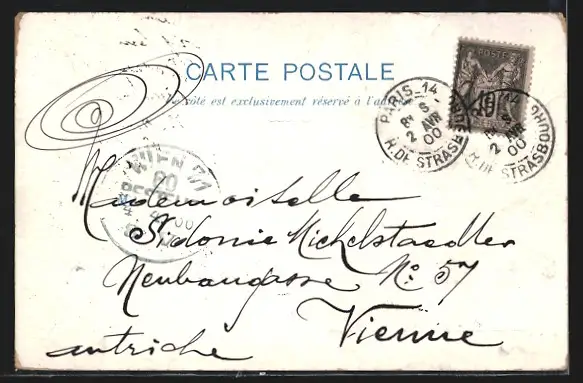 CARTE POSTALE
Ce côté est exclusivement réservé à l'adresse
POSTE
10
PARIS_14
8E S
2
AVR
00
R. DE STRASBOURG
14
2
AVR
00
R. DE STRASBOURG
WIEN 7/1
00
Mademoiselle
Sidonie Michelstaedter
Neubaugasse No: 57
Vienne
autriche